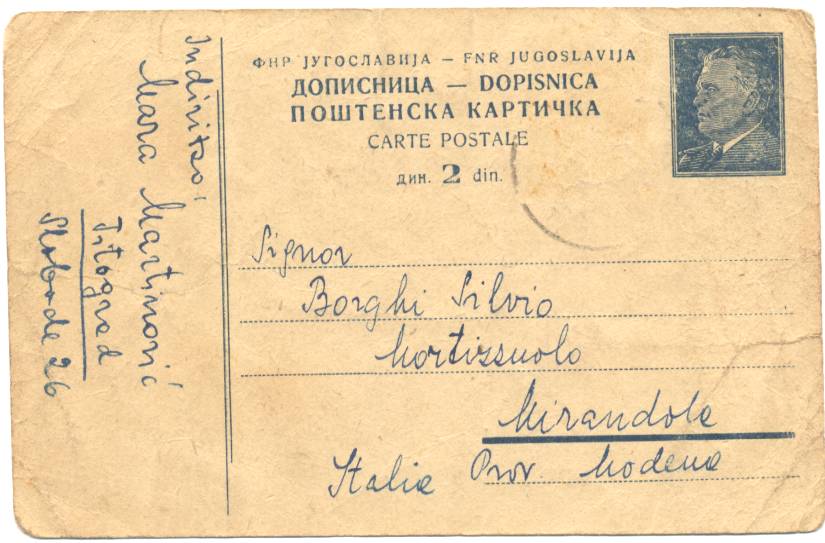 ФНР ЈУГОСЛАВИЈА — FNR JUGOSLAVIJA
ДОПИСНИЦА — DOPISNICA
ПОШТЕНСКА КАРТИЧКА
CARTE POSTALE
дин. 2 din.
Signor
Borghi Silvio
Mortizzuolo
Mirandola
Italia Prov. Modena
Indirizzo:
Mara Martinović
Titograd
Slobode 26